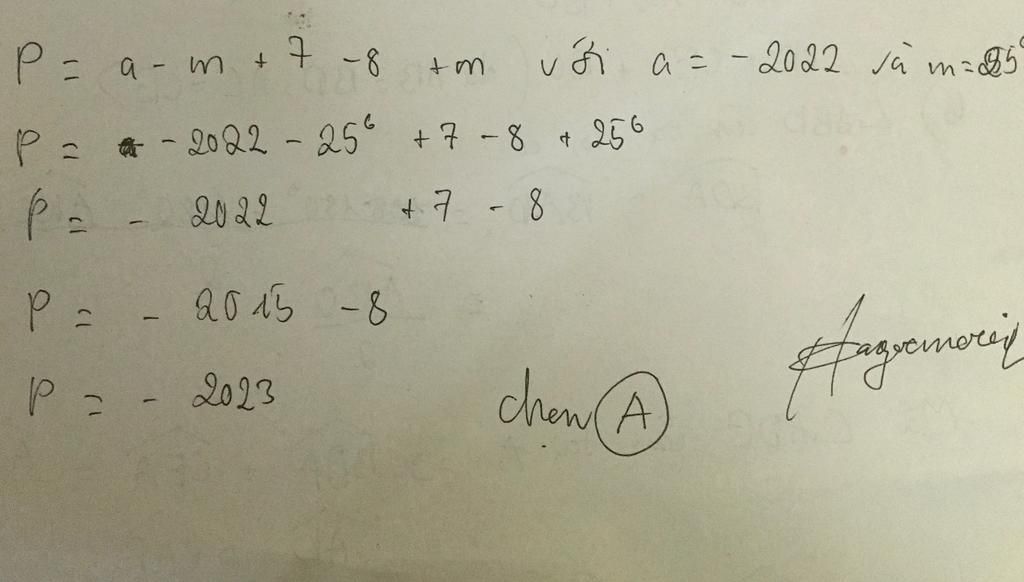 P = a - m + 7 - 8 + m với a = - 2022 và m = 25⁶
P = - 2022 - 25⁶ + 7 - 8 + 25⁶
P = - 2022 + 7 - 8
P = - 2015 - 8
P = - 2023
chọn A